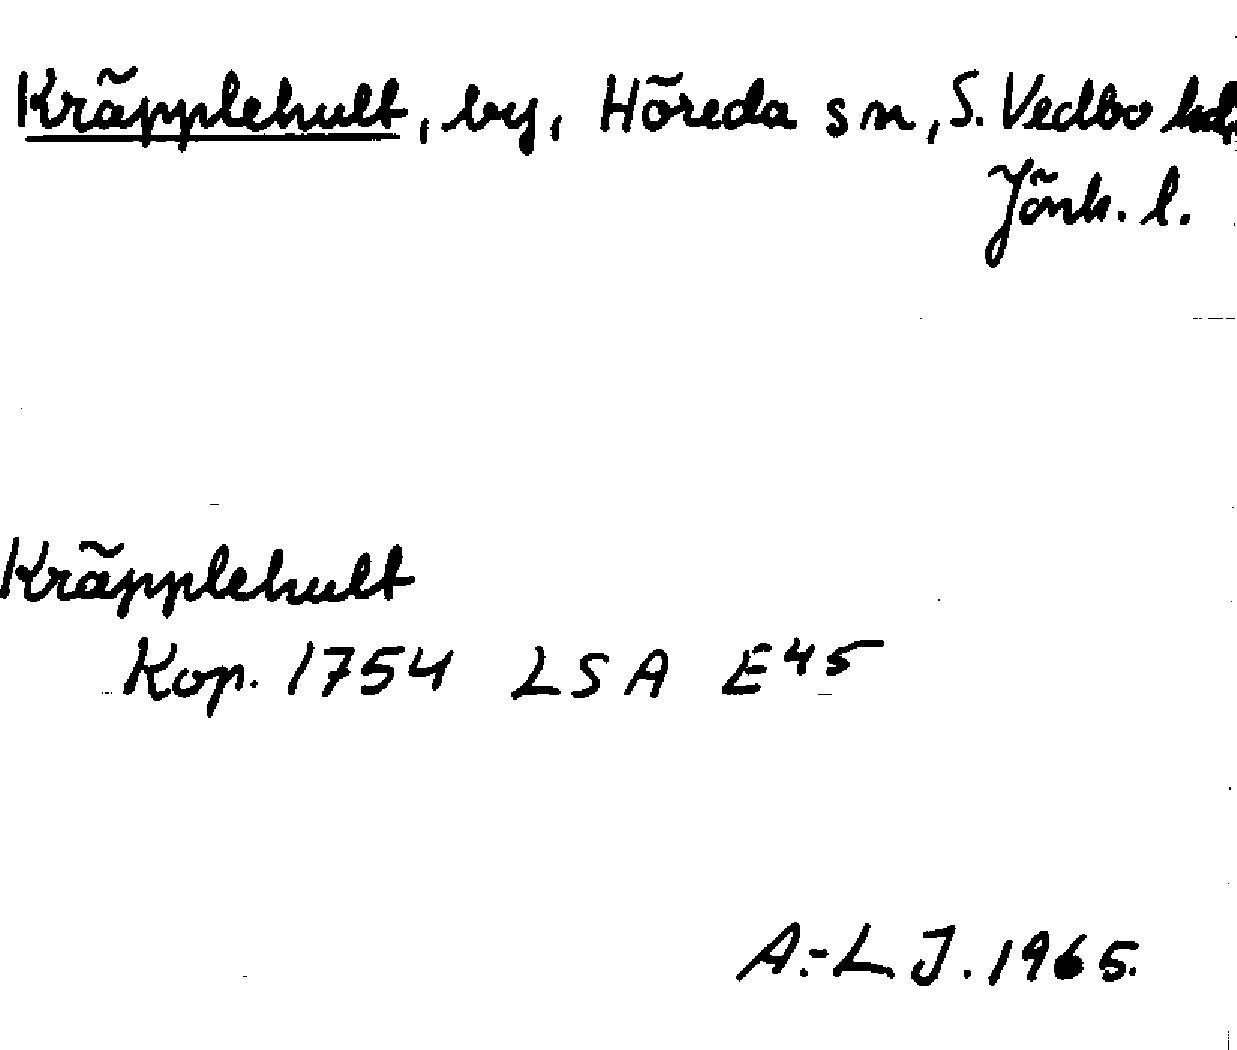 Kräpplehult, by, Höreda sn, S. Vedbo hd,
Jönk. l.
Kräpplehult
Kop. 1754 LSA E45
A.-L J. 1965.